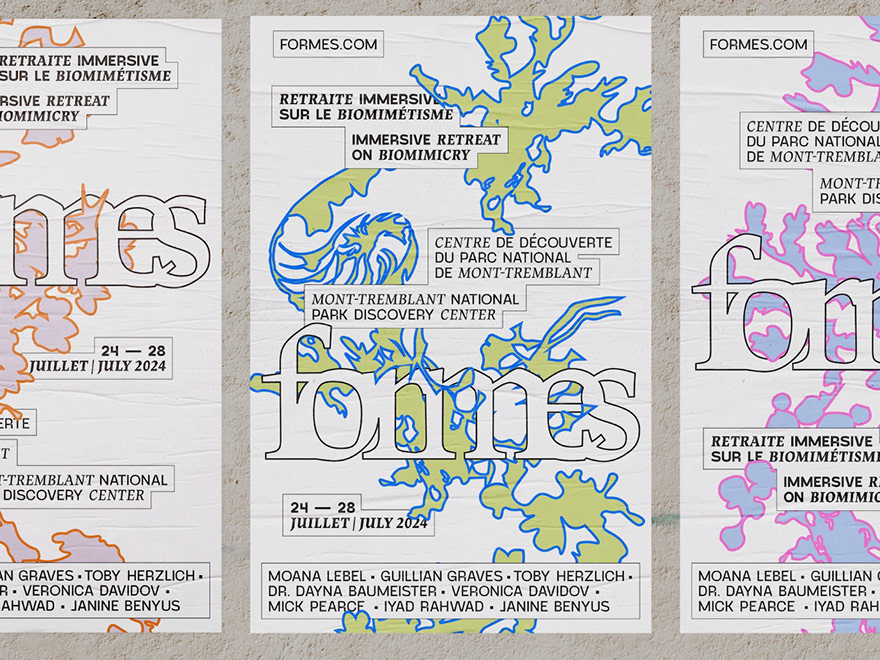 RETRAITE IMMERSIVE
SUR LE BIOMIMÉTISME
RSIVE RETREAT
IOMIMICRY
rmes
24 — 28
JUILLET | JULY 2024
ERTE
NT
T-TREMBLANT NATIONAL
DISCOVERY CENTER
AN GRAVES • TOBY HERZLICH •
R • VERONICA DAVIDOV •
RAHWAD • JANINE BENYUS
FORMES.COM
RETRAITE IMMERSIVE
SUR LE BIOMIMÉTISME
IMMERSIVE RETREAT
ON BIOMIMICRY
CENTRE DE DÉCOUVERTE
DU PARC NATIONAL
DE MONT-TREMBLANT
MONT-TREMBLANT NATIONAL
PARK DISCOVERY CENTER
formes
24 — 28
JUILLET | JULY 2024
MOANA LEBEL • GUILLIAN GRAVES • TOBY HERZLICH •
DR. DAYNA BAUMEISTER • VERONICA DAVIDOV •
MICK PEARCE • IYAD RAHWAD • JANINE BENYUS
FORMES.COM
CENTRE DE DÉCOU
DU PARC NATIONAL
DE MONT-TREMBLA
MONT-TR
PARK DIS
form
RETRAITE IMMERSIVE
SUR LE BIOMIMÉTISME
IMMERSIVE RE
ON BIOMIMIC
MOANA LEBEL • GUILLIAN G
DR. DAYNA BAUMEISTER •
MICK PEARCE • IYAD RAH